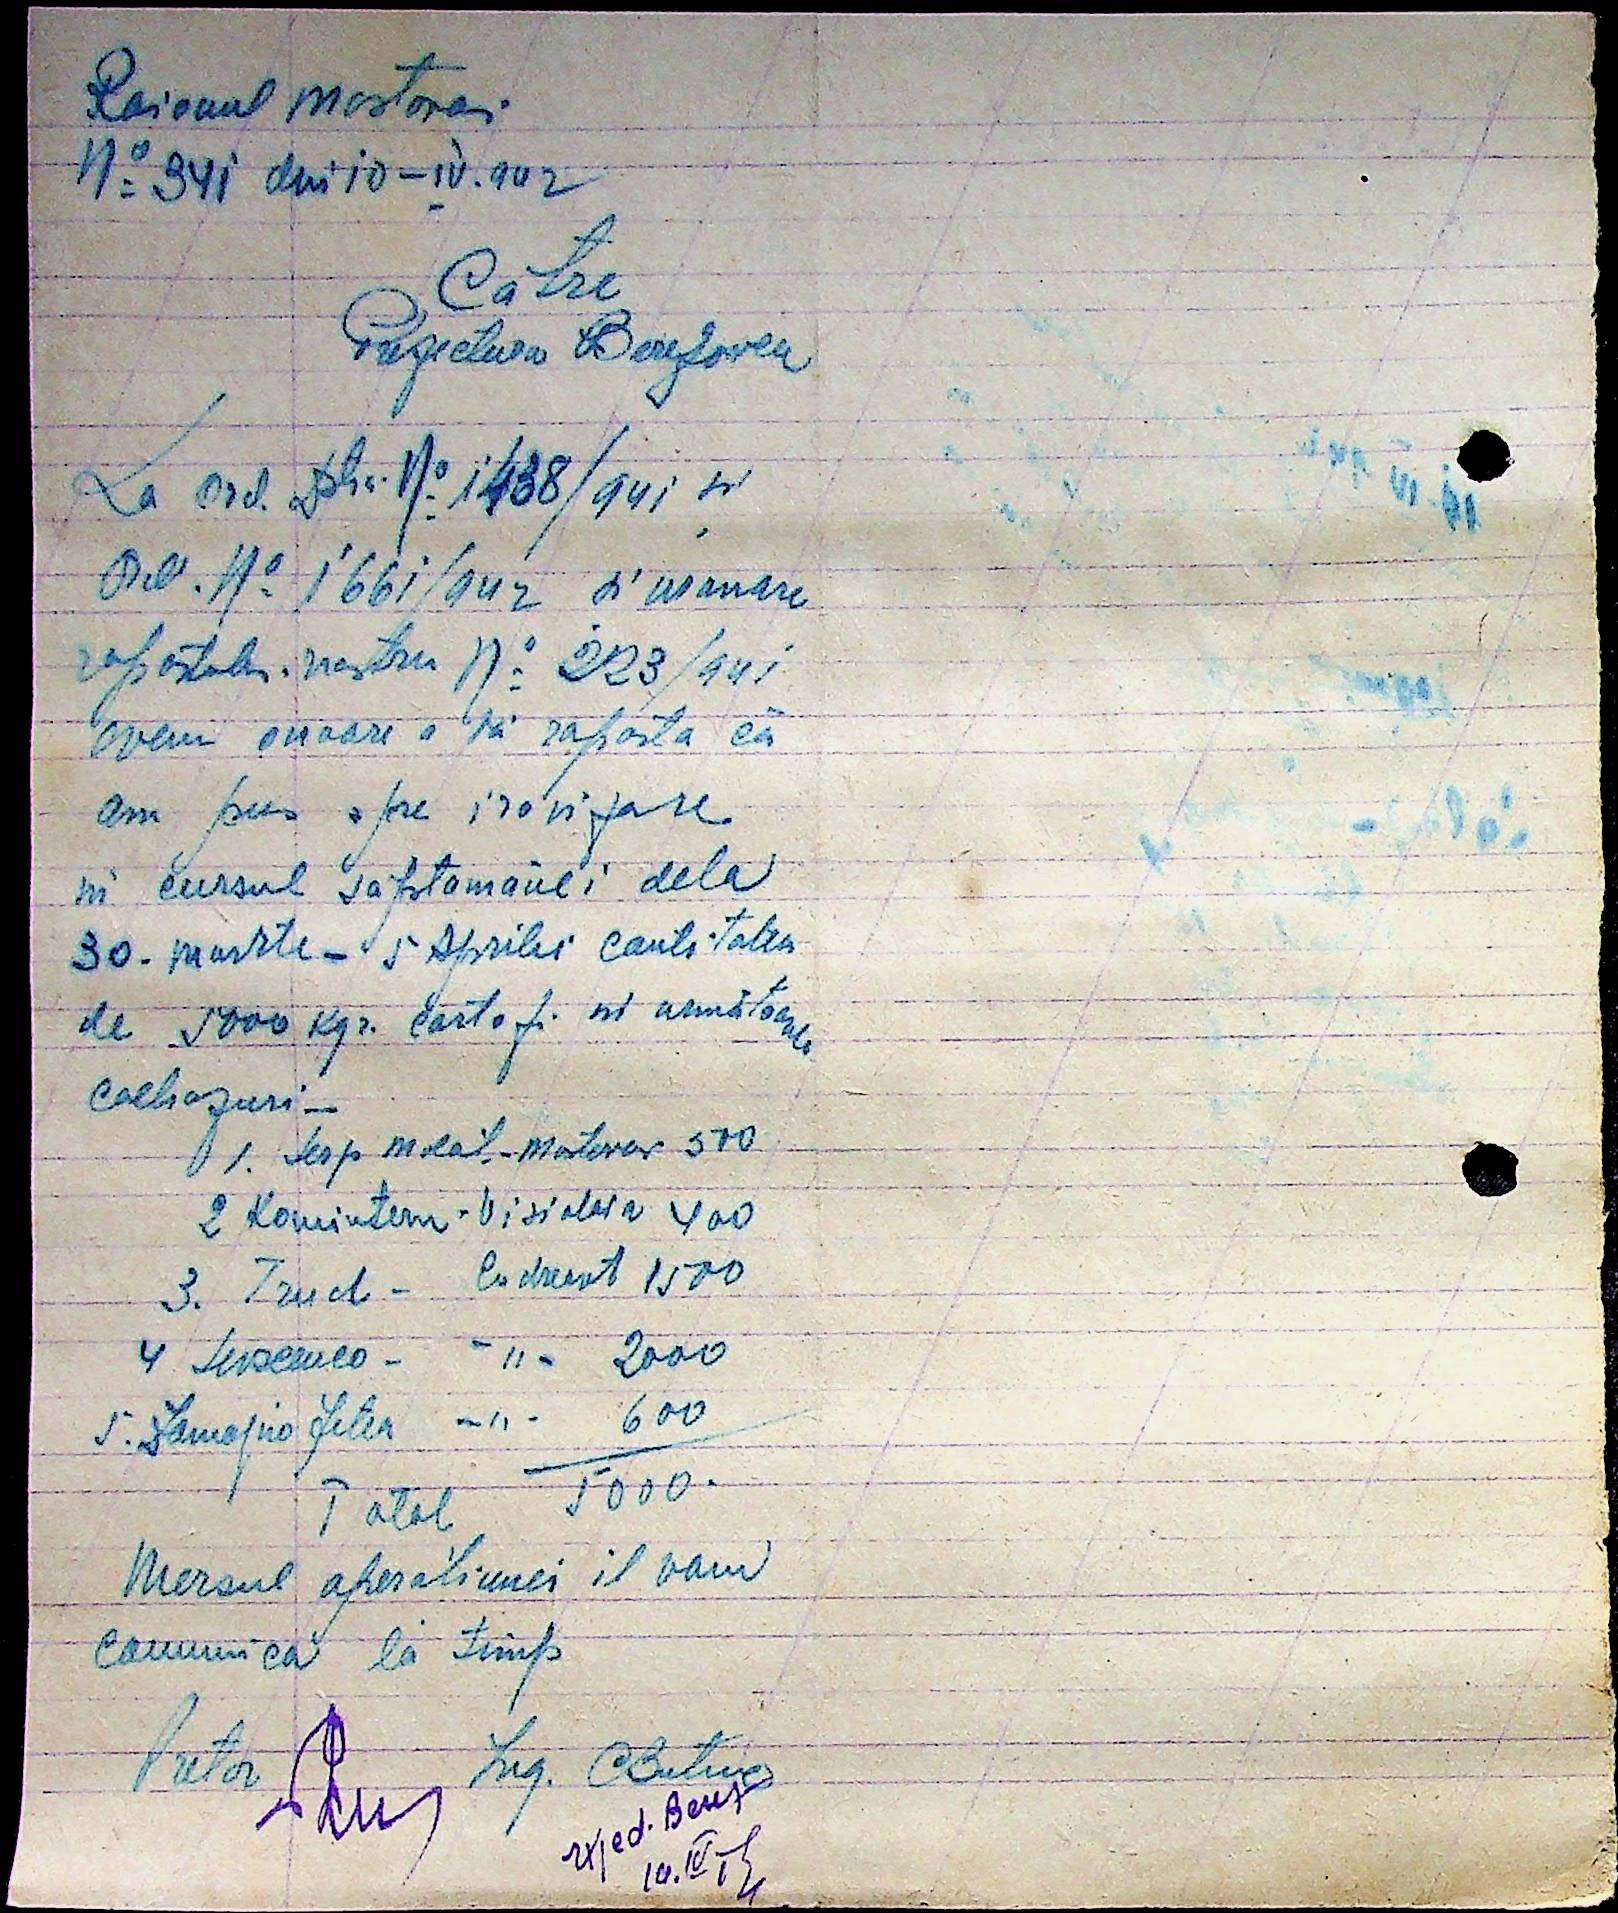 Raionul Mostovoi.
No 341 din 10-IV.942
Către
Prefectura Berezovca
La Ord. Dvs. No 1438/941 și
Ord. No 1661/942 și urmare
raportului nostru No 223/941
avem onoare a vă raporta că
am pus spre irovizare
în cursul săptămânei dela
30. Martie - 5 Aprilie cantitatea
de 5000 Kgr. cartofi în următoarele
colhozuri -
1. Serp Molat - Mostovoi 500
2 Komintern - 400
3. Trud - 1500
4 - " - 2000
5. - " - 600
Total 5000.
Mersul operațiunei il vom
comunica la timp
Pretor Ing.
exped. Berez
10.IV